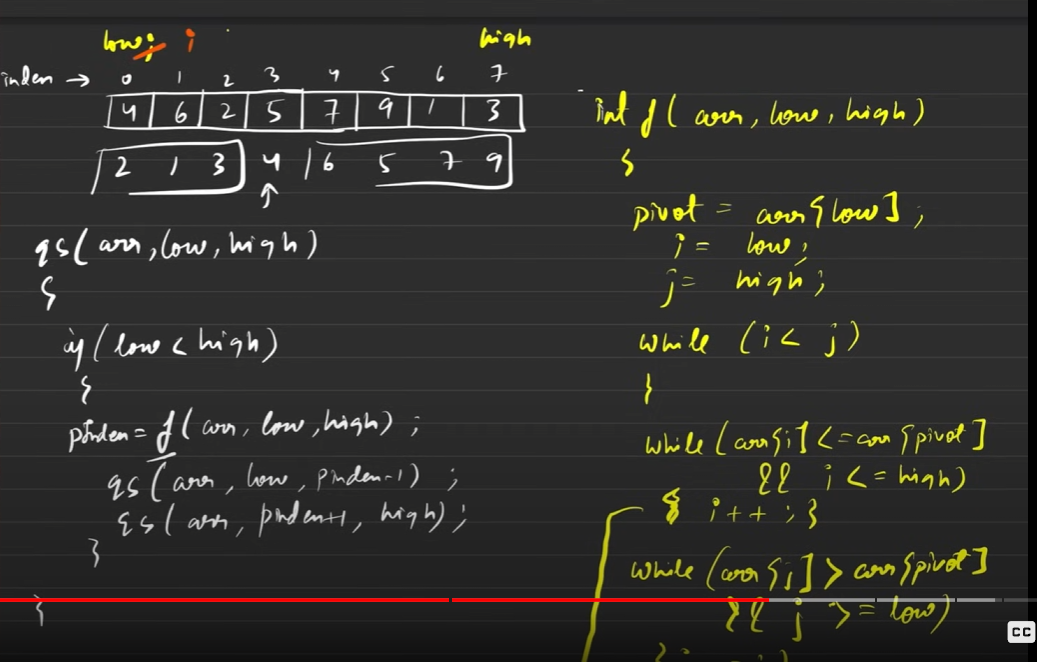 low; i high
index → 0 1 2 3 4 5 6 7
4 6 2 5 7 9 1 3
2 1 3 4 6 5 7 9
↑
qs(arr, low, high)
{
if (low < high)
{
pIndex = f(arr, low, high);
qs(arr, low, pIndex-1);
qs(arr, pIndex+1, high);
}
}
int f(arr, low, high)
{
pivot = arr[low];
i = low;
j = high;
while (i < j)
{
while (arr[i] <= arr[pivot]
&& i <= high)
{ i++; }
while (arr[j] > arr[pivot]
&& j >= low)
CC